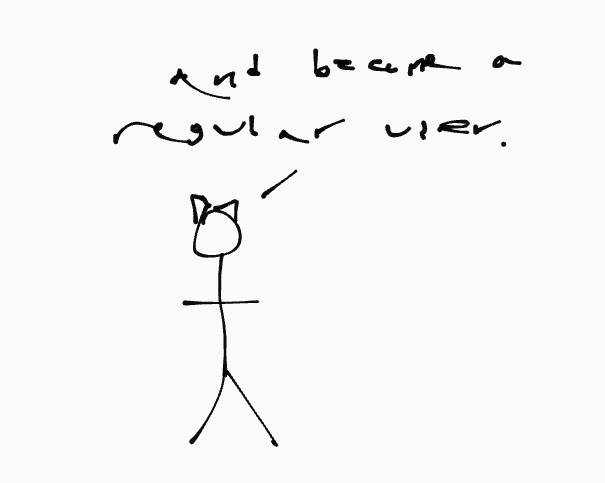 and become a
regular user.